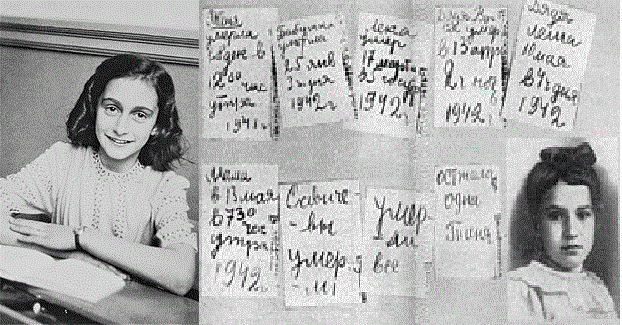 Женя
умерла
28 дек в
12 00 час
утра
1941 г
Бабушка
умерла
25 янв
3ч дня
1942 г
Лека
умер
17 марта
в 5 час
1942 г
Дядя Вася
умер
в 13 апр
2ч ноч
1942 г
Дядя
Леша
10 мая
в 4ч дня
1942
Мама
в 13 мая
в 7 30
час
утра
1942
Савиче-
-вы
умер-
-ли
умер-
-ли
все
осталас
одна
Таня